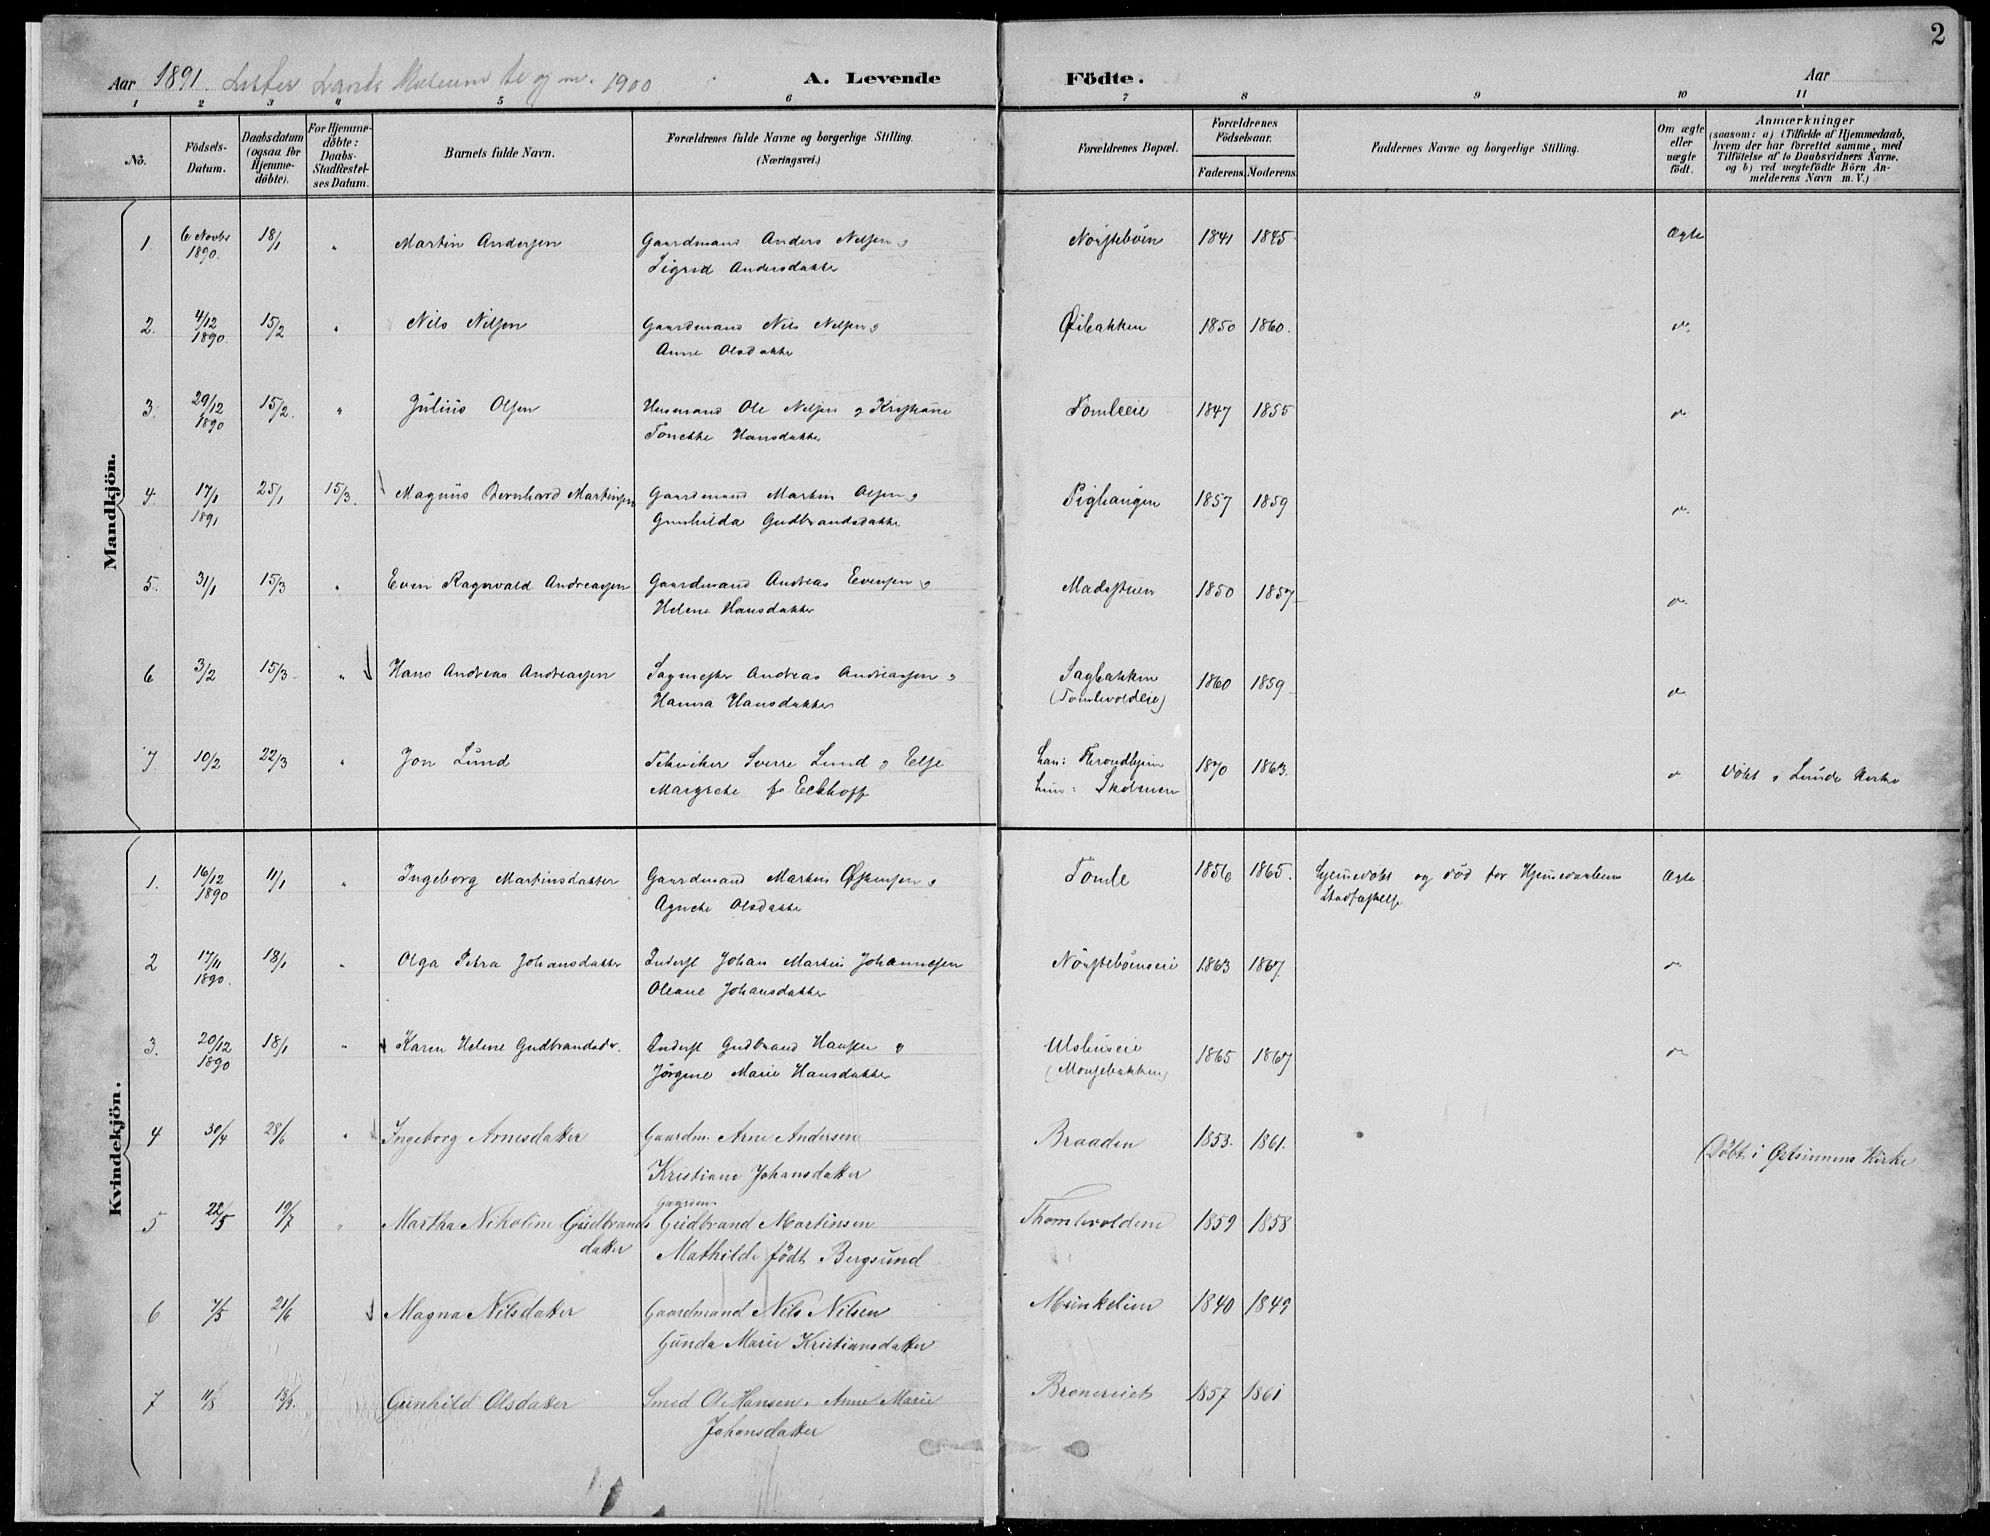 2
Aar 1891. Lister Lands Museum til og m. 1900 A. Levende Födte. Aar
1 2 3 4 5 6 7 8 9 10 11
No.
Födsels-
Datum.
Daabsdatum
(ogsaa for
Hjemme-
døbte).
For Hjemme-
døbte:
Daabs-
Stadfæstel-
ses Datum.
Barnets fulde Navn.
Forældrenes fulde Navne og borgerlige Stilling.
(Næringsvei.)
Forældrenes Bopæl.
Forældrenes
Födselsaar.
Faderens. Moderens.
Faddernes Navne og borgerlige Stilling.
Om ægte
eller
uægte
födt.
Anmærkninger
(saasom: a) i Tilfælde af Hjemmedaab,
hvem der har forrettet samme, med
Tilföielse af to Daabsvidners Navne.
og b) ved uægtefödte Börn An-
melderens Navn m. V.)
Mandkjön.
1. 6 Novbr 18/1 " Martin Andersen Gaardmand Anders Nelsen og Norstebøen 1841 1845 Ægte
1890. Sigrid Andersdatter
2. 4/12 15/2 " Nils Nilsen Gaardmand Nils Nelsen og Øibakken 1850 1860.
1890. Anne Olsdatter
3. 29/12 15/2. " Julius Olsen Husmand Ole Nelsen og Kristiane Tomleeie 1847 1855
1890 Tonette Hansdatter
4. 17/1 25/1 15/3. Magnus Bernhard Martinsen Gaardmand Martin Olsen og 1857 1859
1891 Gunhilda Gudbrandsdatter
5. 31/1 15/3 " Even Ragnvald Andreassen Gaardmand Andreas Evensen og Madsstuen 1850 1857
Helene Hansdatter
6 3/2 15/3. " Hans Andreas Andreassen Sagmester Andreas Andreassen og Sagbakken 1860 1859
Hanna Hansdatter (Tomlevoldeie)
7. 10/2 22/3 " Jon Lund Tekniker Sverre Lund og Else han: Throndhjem 1870 1863. Døbt i Lunde Kirke
Margrete f. Eckhoff hun: Skoienen
Kvindekjön.
1. 16/12 11/1 " Ingeborg Martinsdatter Gaardmand Martin Østensen og Tomle 1856 1865. Hjemmedøbt og død før Hjemmedaabens Ægte
1890 Agnete Olsdatter Stadfæstelse
2 17/11 18/1 " Olga Petra Johansdatter Inderst Johan Martin Johannesen Nørstebøenseie 1863 1867.
1890. Oleane Johansdatter
3. 20/12 18/1 " Karen Helene Gudbrandsdr. Inderst Gudbrand Hansen og Ulshuseie 1865 1867
1890 Jörgine Marie Hansdatter
4 30/4 28/6 " Ingeborg Arnesdatter Gaardm. Arne Andersen Braaden 1853. 1861. Døbt i Østsinnens Kirke
Kristiane Johansdatter
Gaardm.
5 22/5 19/7 " Martha Nikoline Gudbrands Gudbrand Martinsen Thomlevolden 1859 1858
datter Mathilde födt Bergsund
6 7/5 21/6 Magna Nilsdatter Gaardmand Nils Nilsen Munkelien 1840 1849
Gunda Marie Kristiansdatter
7 11/8 13/9. Gunhild Olsdatter Smed O. Hansen. Anne Marie 1857 1861
Johansdatter